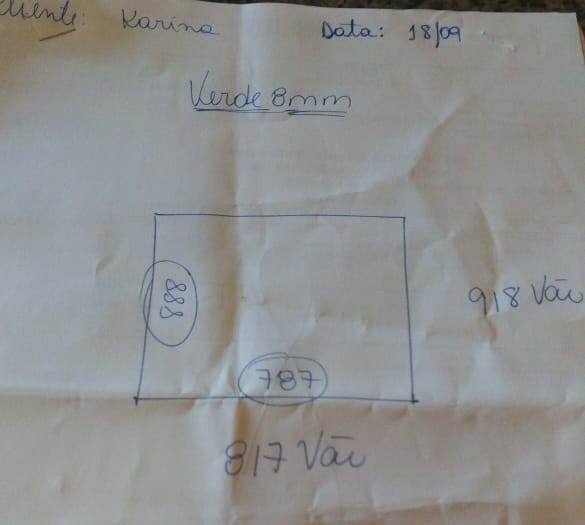 Cliente: Karina Data: 18/09
Verde 8mm
888
918 Vão
787
817 Vão